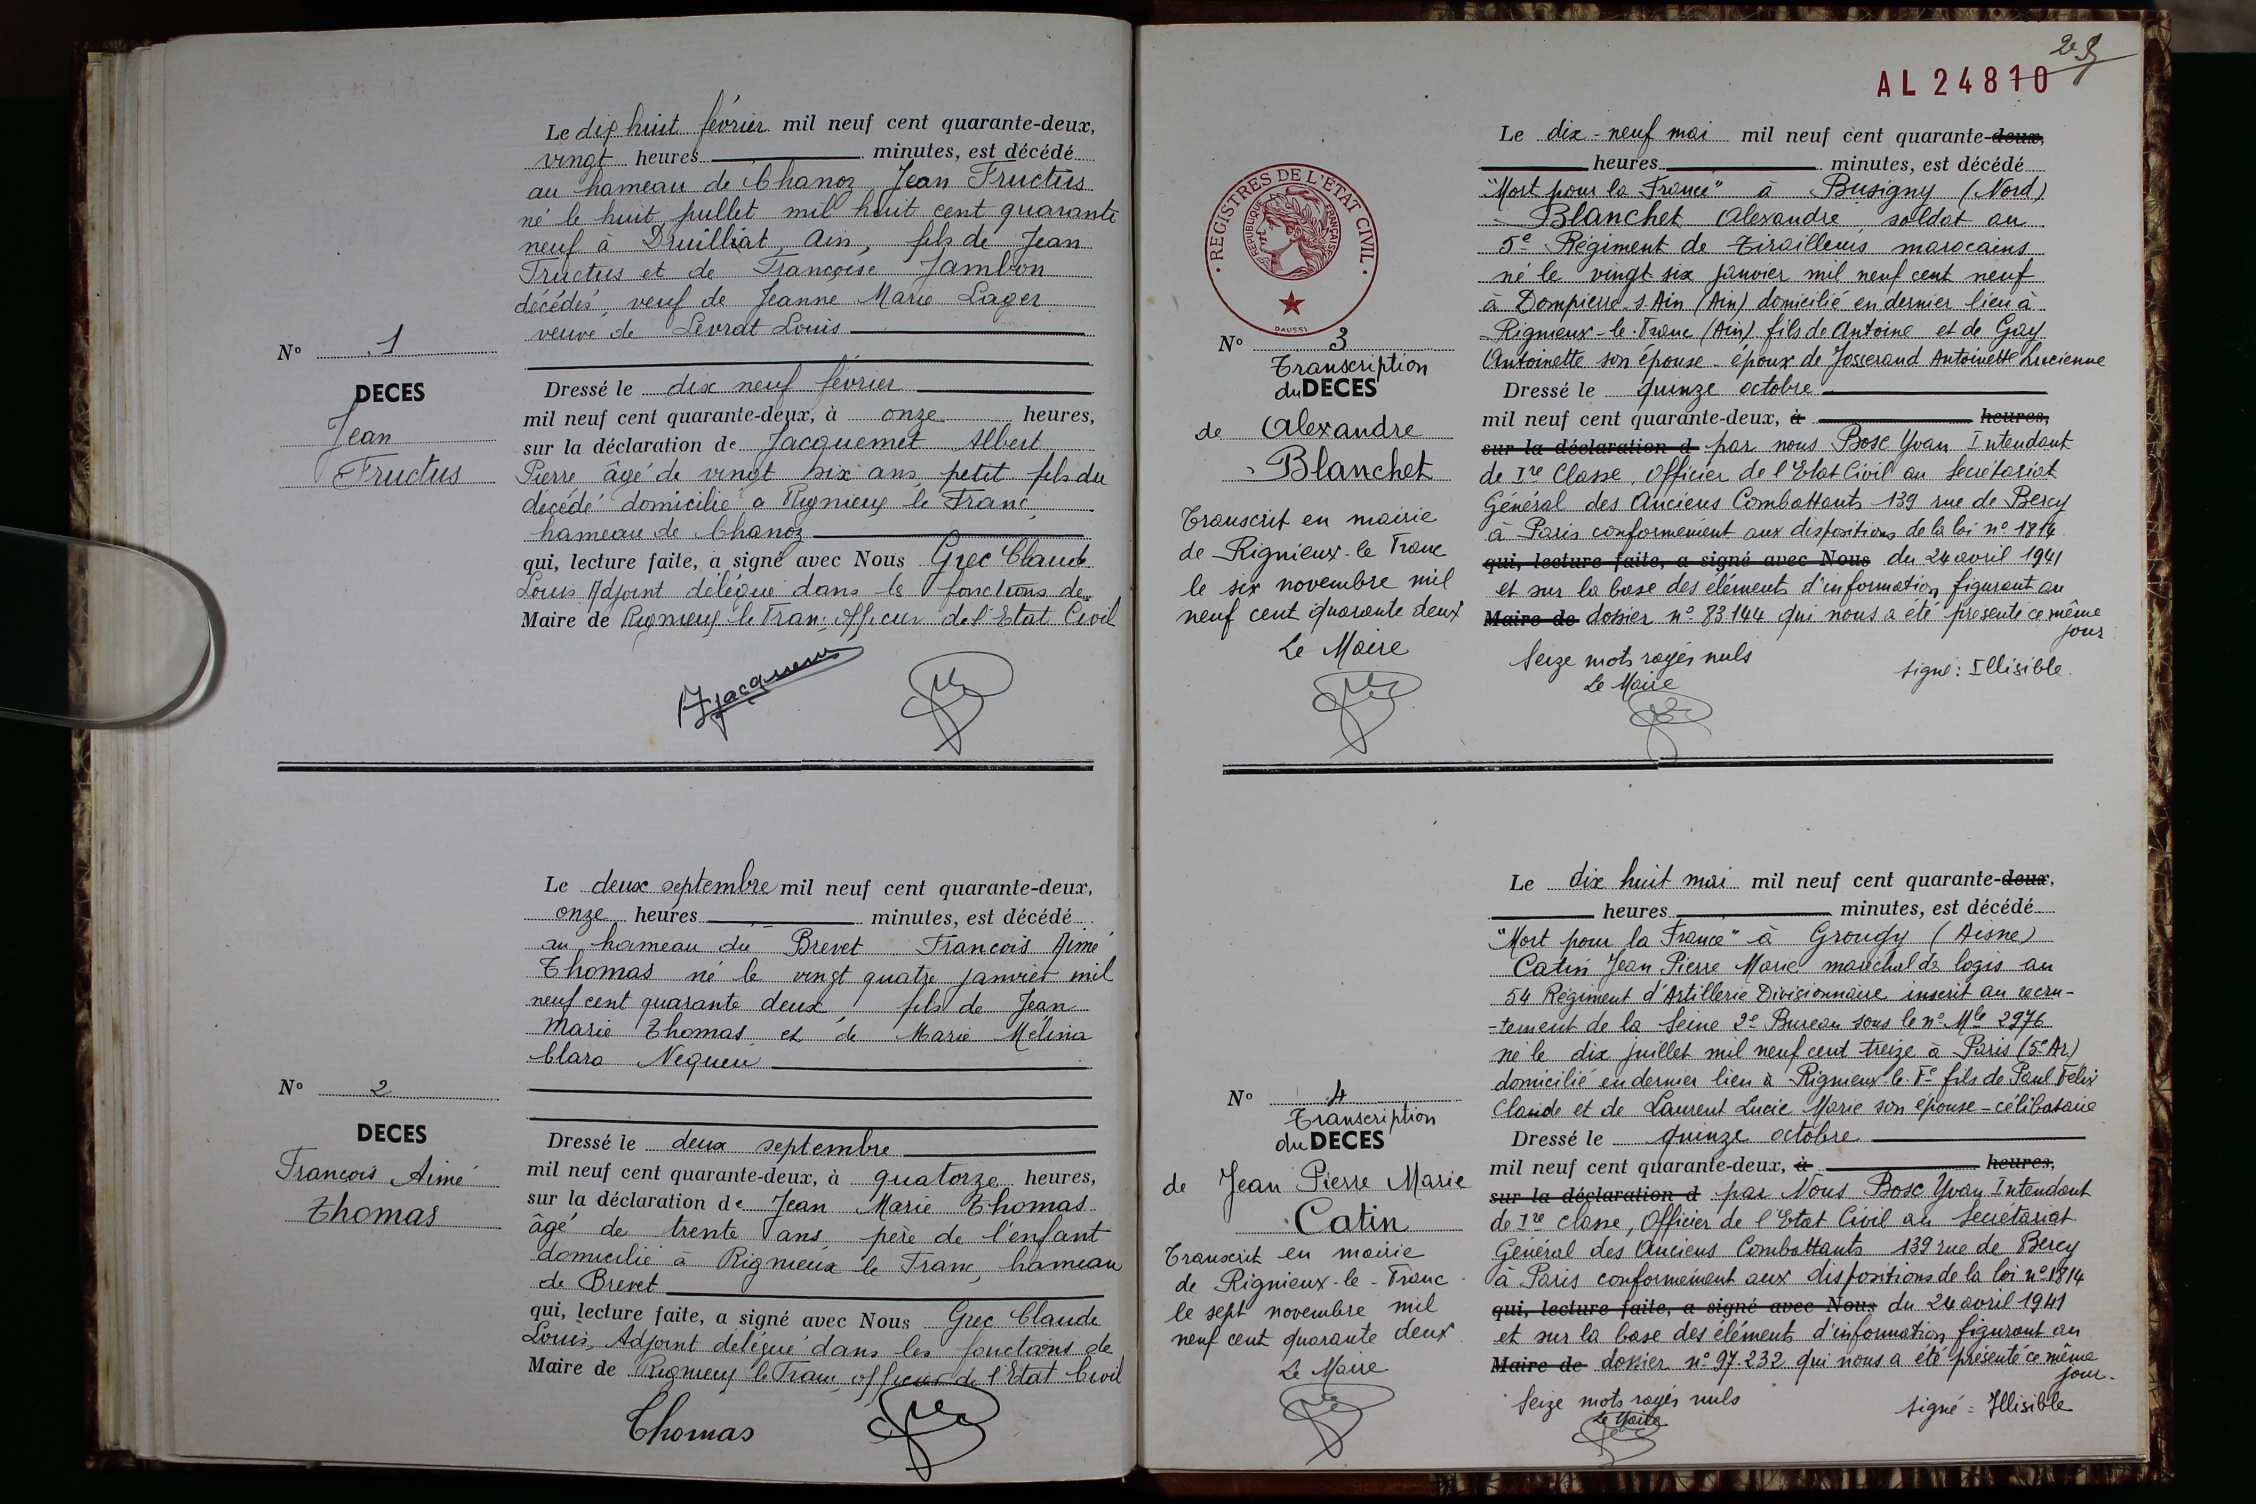 Le dix huit février mil neuf cent quarante-deux,
vingt heures minutes, est décédé
au hameau de Chanoz Jean Fructus
né le huit juillet mil huit cent quarante
neuf à Druilliat, Ain, fils de Jean
Fructus et de Françoise Jambon
décédés, veuf de Jeanne Marie Lager
veuve de Levrat Louis
N° 1
DECES
Jean
Fructus
Dressé le dix neuf février
mil neuf cent quarante-deux, à onze heures,
sur la déclaration de Jacquemet Albert
Pierre âgé de vingt six ans, petit fils du
décédé domicilié a Rignieux le Franc
hameau de Chanoz
qui, lecture faite, a signé avec Nous Grec Claude
Louis Adjoint délégué dans les fonctions de
Maire de Rignieux le Franc officier de l'Etat Civil
Le deux septembre mil neuf cent quarante-deux,
onze heures minutes, est décédé
au hameau du Brevet François Aimé
Thomas né le vingt quatre janvier mil
neuf cent quarante deux, fils de Jean
Marie Thomas et de Marie Mélina
Clara Nequeu
N° 2
DECES
François Aimé
Thomas
Dressé le deux septembre
mil neuf cent quarante-deux, à quatorze heures,
sur la déclaration de Jean Marie Thomas
âgé de trente ans père de l'enfant
domicilié à Rignieux le Franc, hameau
de Brevet
qui, lecture faite, a signé avec Nous Grec Claude
Louis, Adjoint délégué dans les fonctions de
Maire de Rignieux le Franc officier de l'Etat Civil
Thomas
25
AL 24810
REGISTRES DE L'ÉTAT CIVIL
REPUBLIQUE FRANÇAISE
DAUSSI
Le dix-neuf mai mil neuf cent quarante-deux,
heures minutes, est décédé
"Mort pour la France" à Busigny (Nord)
Blanchet Alexandre soldat au
5e Régiment de Tirailleurs marocains
né le vingt six janvier mil neuf cent neuf
à Dompierre s. Ain (Ain) domicilié en dernier lieu à
Rignieux-le-Franc (Ain) fils de Antoine et de Gay
Antoinette son épouse - époux de Josserand Antoinette Lucienne
N° 3
Transcription
du DECES
de Alexandre
Blanchet
Transcrit en mairie
de Rignieux-le Franc
le six novembre mil
neuf cent quarante deux
Le Maire
Dressé le quinze octobre
mil neuf cent quarante-deux, à heures,
sur la déclaration d par nous Bosc Yvan Intendant
de Ire Classe, Officier de l'Etat Civil au Secrétariat
Général des Anciens Combattants 139 rue de Bercy
à Paris conformément aux dispositions de la loi n° 1814
qui, lecture faite, a signé avec Nous du 24 avril 1941
et sur la base des éléments d'information figurant au
Maire de dossier n° 83.144 qui nous a été présenté ce même
jour
Seize mots rayés nuls
Le Maire
signé : Illisible.
Le dix huit mai mil neuf cent quarante-deux,
heures minutes, est décédé
"Mort pour la France" à Grougy (Aisne)
Catin Jean Pierre Marie maréchal des logis au
54 Régiment d'Artillerie Divisionnaire inscrit au recru-
-tement de la Seine 2e Bureau sous le n° Mle 2976
né le dix juillet mil neuf cent treize à Paris (5e Ar.)
domicilié en dernier lieu à Rignieux-le-Fc fils de Paul Félix
Claude et de Laurent Lucie Marie son épouse - célibataire
N° 4
Transcription
du DECES
de Jean Pierre Marie
Catin
Transcrit en mairie
de Rignieux-le-Franc
le sept novembre mil
neuf cent quarante deux
Le Maire
Dressé le quinze octobre
mil neuf cent quarante-deux, à heures,
sur la déclaration d par Nous Bosc Yvan Intendant
de Ire classe, Officier de l'Etat Civil au Secrétariat
Général des Anciens Combattants 139 rue de Bercy
à Paris conformément aux dispositions de la loi n° 1814
qui, lecture faite, a signé avec Nous du 24 avril 1941
et sur la base des éléments d'information figurant au
Maire de dossier n° 97.232 qui nous a été présenté ce même
jour.
Seize mots rayés nuls
Le Maire
signé = Illisible